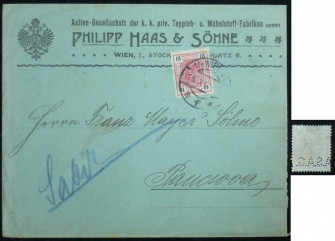 Actien-Gesellschaft der k. k. priv. Teppich- u. Möbelstoff-Fabriken vormals
PHILIPP HAAS & SÖHNE
WIEN, I., STOCK
PLATZ 6.
Herren Franz Mayer's Söhne
Pancsova